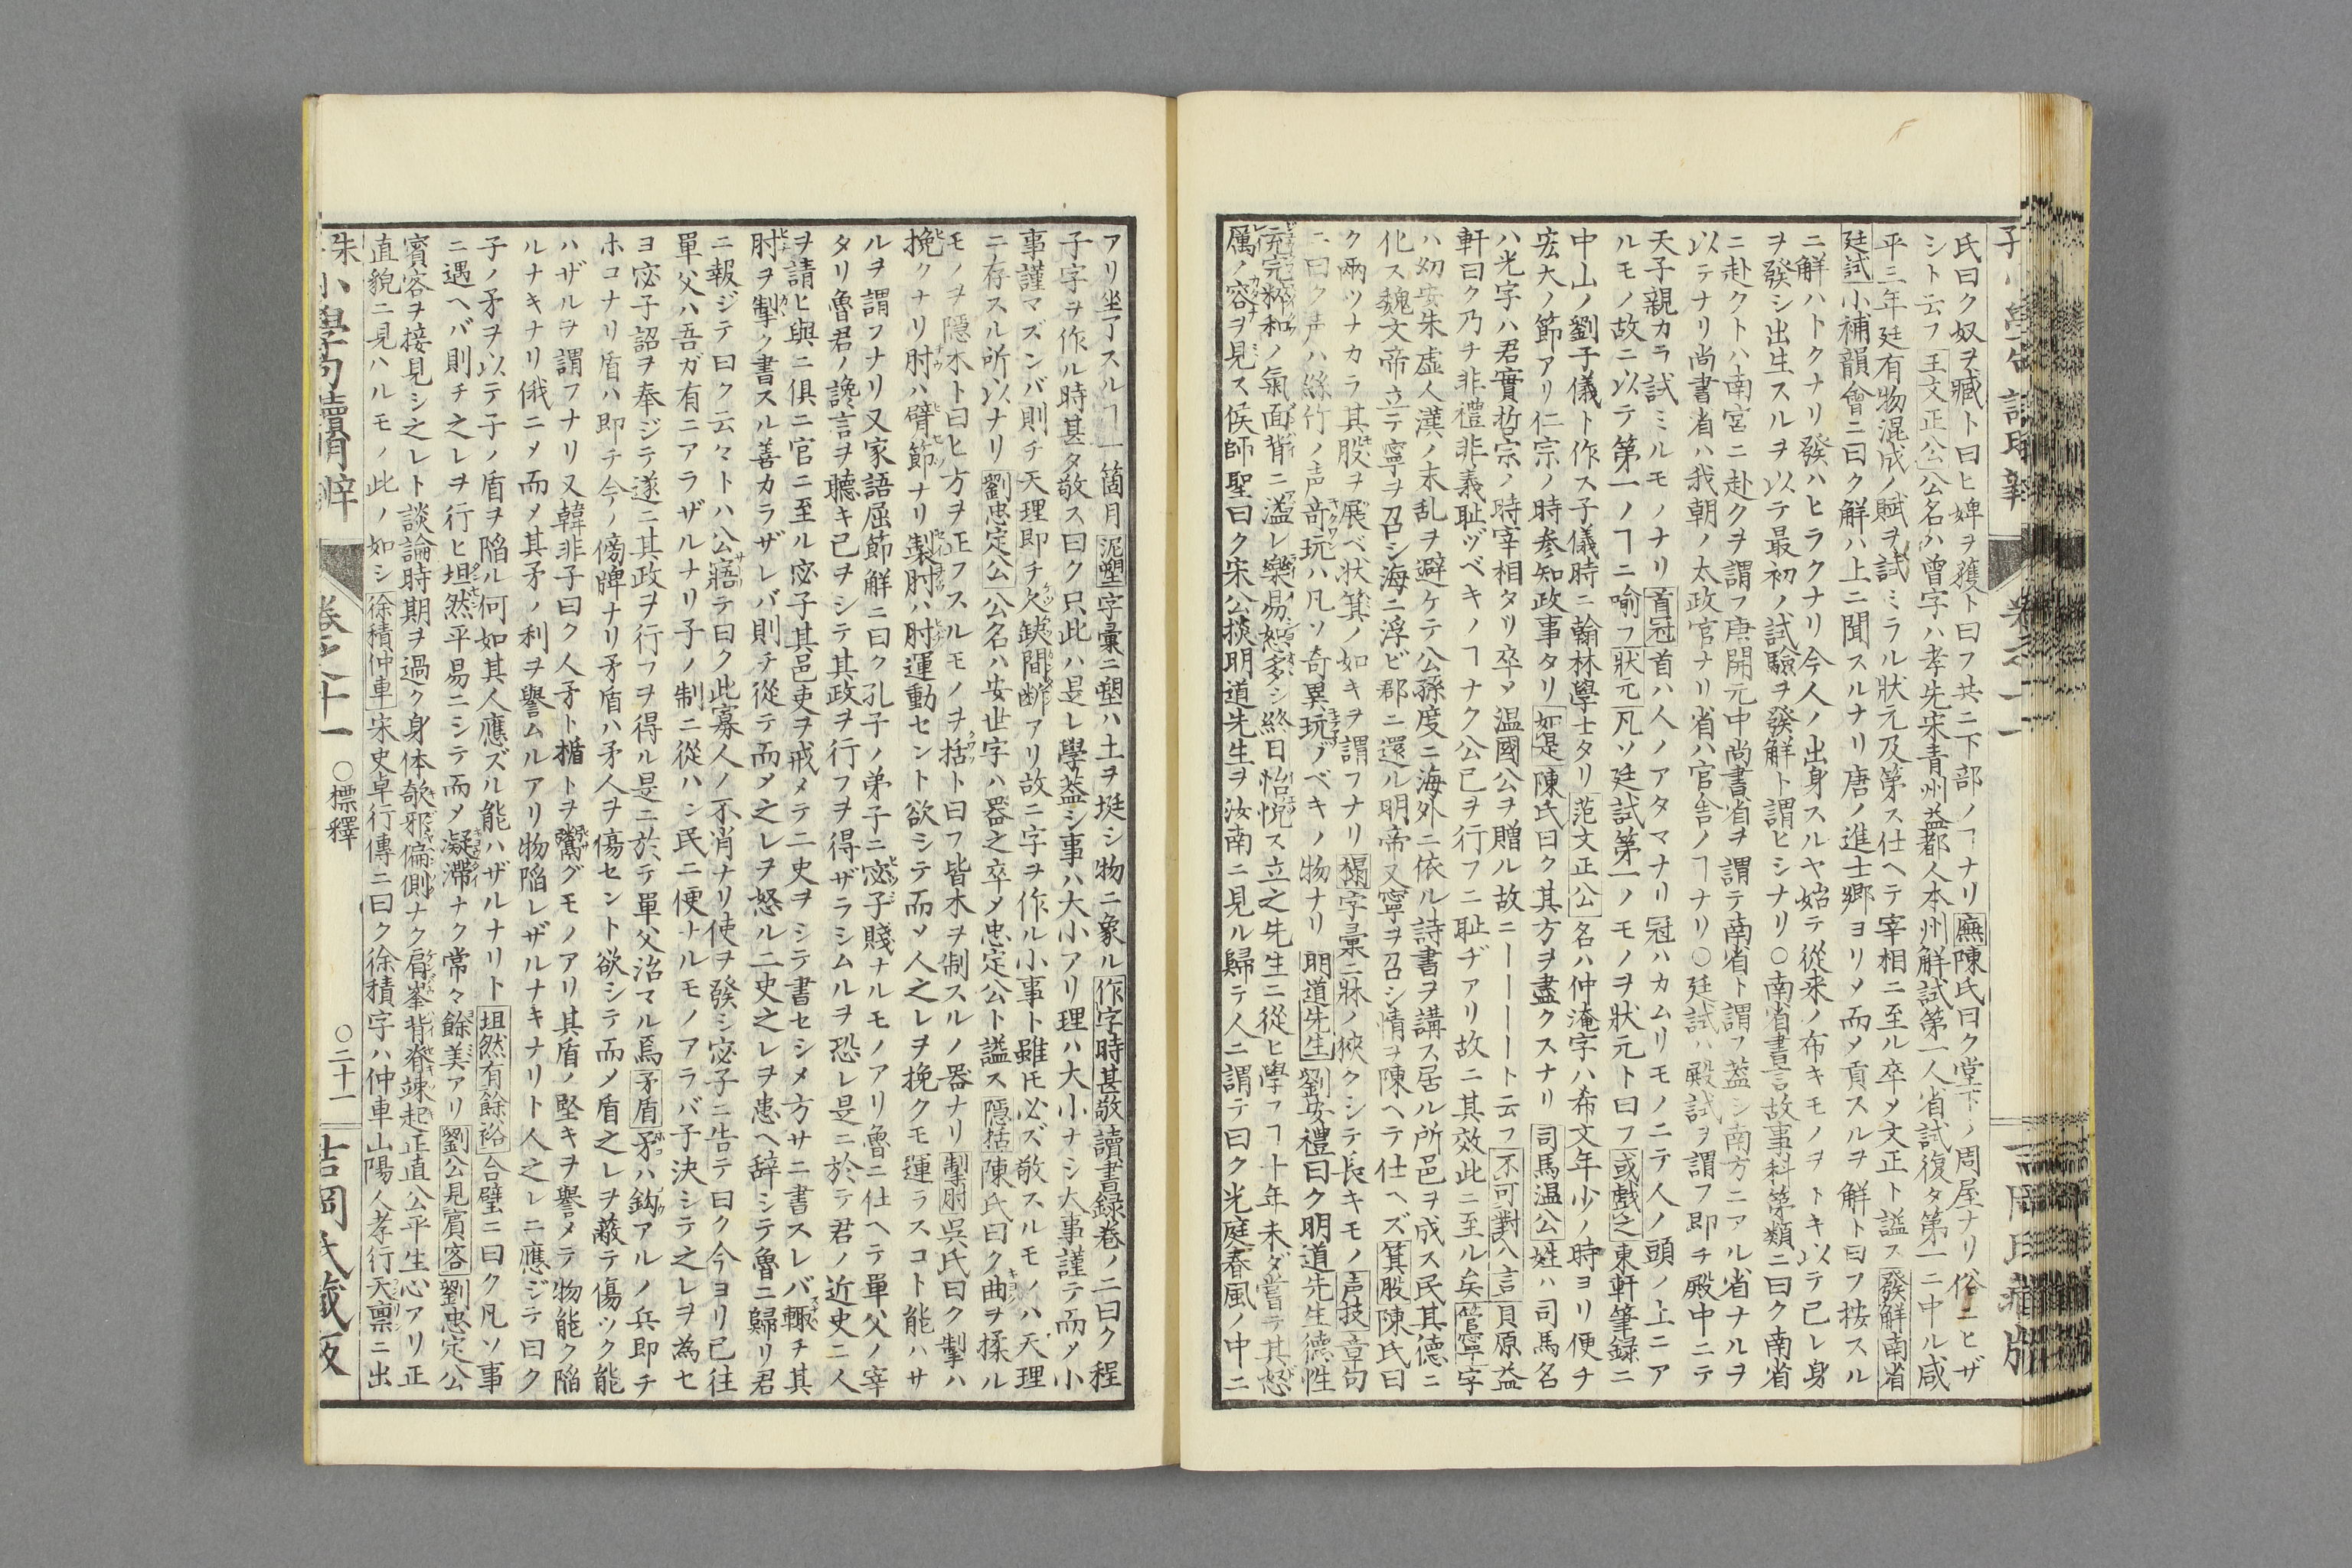 氏曰ク奴ヲ臧ト曰ヒ婢ヲ獲ト曰フ共ニ下部ノヿナリ廡陳氏曰ク堂下ノ周屋ナリ俗ニヒザ
シト云フ王文正公公名ハ曾字ハ孝先宋青州益都人本州解試第一人省試復タ第一ニ中ル咸
平三年廷有物混成ノ賦ヲ試ミラル狀元及第ス仕ヘテ宰相ニ至ル卒メ文正ト謚ス發解南省
廷試小補韻會ニ曰ク解ハ上ニ聞スルナリ唐ノ進士鄉ヨリメ而メ貢スルヲ解ト曰フ按スル
ニ解ハトクナリ發ハヒラクナリ今人ノ出身スルヤ始テ從來ノ布キモノヲトキ以テ己レ身
ヲ發シ出生スルヲ以テ最初ノ試驗ヲ發解ト謂ヒシナリ○南省書言故事科第類ニ曰ク南省
ニ赴クトハ南宮ニ赴クヲ謂フ唐開元中尚書省ヲ謂テ南省ト謂フ蓋シ南方ニアル省ナルヲ
以テナリ尚書省ハ我朝ノ太政官ナリ省ハ官舎ノヿナリ○廷試ハ殿試ヲ謂フ即チ殿中ニテ
天子親カラ試ミルモノナリ首冠首ハ人ノアタマナリ冠ハカムリモノニテ人ノ頭ノ上ニア
ルモノ故ニ以テ第一ノヿニ喻フ狀元凡ソ廷試第一ノモノヲ狀元ト曰フ或戲之東軒筆録ニ
中山ノ劉子儀ト作ス子儀時ニ翰林學士タリ范文正公名ハ仲淹字ハ希文年少ノ時ヨリ便チ
宏大ノ節アリ仁宗ノ時参知政事タリ如是陳氏曰ク其方ヲ盡クスナリ司馬温公姓ハ司馬名
ハ光字ハ君實哲宗ノ時宰相タリ卒メ温國公ヲ贈ル故ニーーーート云フ不可對人言貝原益
軒曰ク乃チ非禮非義耻ヅベキノヿナク公已ヲ行フニ耻ヂアリ故ニ其效此ニ至ル矣管寧字
ハ幼安朱虛人漢ノ末乱ヲ避ケテ公孫度ニ海外ニ依ル詩書ヲ講ス居ル所邑ヲ成ス民其德ニ
化ス魏文帝立テ寧ヲ召シ海ニ浮ビ郡ニ還ル明帝又寧ヲ召シ情ヲ陳ヘテ仕ヘズ箕股陳氏曰
ク兩ツナカラ其股ヲ展ベ状箕ノ如キヲ謂フナリ榻字彙ニ牀ノ狹クシテ長キモノ声技章句
ニ曰ク声ハ絲竹ノ声竒玩ハ凡ソ奇異玩ブベキノ物ナリ明道先生劉安禮曰ク明道先生德性
充完粹和ノ氣面背ニ溢レ樂易恕多シ終日怡悦ス立之先生ニ從ヒ學フヿ十年未ダ嘗テ其怒
厲ノ容ヲ見ス侯師聖曰ク朱公掞明道先生ヲ汝南ニ見ル歸テ人ニ謂テ曰ク光庭春風ノ中ニ
アリ坐了スルヿ一箇月泥塑字彙ニ塑ハ土ヲ埏シ物ニ象ル作字時甚敬讀書録卷ノ二曰ク程
子字ヲ作ル時甚タ敬ス曰ク只此ハ是レ學蓋シ事ハ大小アリ理ハ大小ナシ大事謹テ而メ小
事謹マズンバ則チ天理即チ欠缺間断アリ故ニ字ヲ作ル小事ト雖𪜈必ズ敬スルモノハ天理
ニ存スル所以ナリ劉忠定公公名ハ安世字ハ器之卒メ忠定公ト謚ス隱括陳氏曰ク曲ヲ揉ル
モノヲ隱木ト曰ヒ方ヲ正フスルモノヲ括ト曰フ皆木ヲ制スルノ器ナリ掣肘吳氏曰ク掣ハ
挽クナリ肘ハ臂節ナリ製肘ハ肘運動セント欲シテ而メ人之レヲ挽クモ運ラスコト能ハサ
ルヲ謂フナリ又家語屈節解ニ曰ク孔子ノ弟子ニ宓子賤ナルモノアリ魯ニ仕ヘテ單父ノ宰
タリ魯君ノ讒言ヲ聽キ己ヲシテ其政ヲ行フヲ得ザラシムルヲ恐レ是ニ於テ君ノ近史二人
ヲ請ヒ與ニ倶ニ官ニ至ル宓子其邑吏ヲ戒メテ二史ヲシテ書セシメ方サニ書スレバ輙チ其
肘ヲ掣ク書スル善カラザレバ則チ從テ而メ之レヲ怒ル二史之レヲ患ヘ辞シテ魯ニ歸リ君
ニ報ジテ曰ク云々トハ公寤テ曰ク此寡人ノ不肖ナリ使ヲ發シ宓子ニ告テ曰ク今ヨリ已往
單父ハ吾ガ有ニアラザルナリ子ノ制ニ從ハン民ニ便ナルモノアラバ子決シテ之レヲ為セ
ヨ宓子詔ヲ奉ジテ遂ニ其政ヲ行フヲ得ル是ニ於テ單父治マル焉矛盾矛ハ鈎アルノ兵即チ
ホコナリ盾ハ即チ今ノ傍牌ナリ矛盾ハ矛人ヲ傷セント欲シテ而メ盾之レヲ蔽テ傷ツク能
ハザルヲ謂フナリ又韓非子曰ク人矛ト楯トヲ鬻グモノアリ其盾ノ堅キヲ譽メテ物能ク陷
ルナキナリ俄ニメ而メ其矛ノ利ヲ譽ムルアリ物陷レザルナキナリト人之レニ應ジテ曰ク
子ノ矛ヲ以テ子ノ盾ヲ陷ル何如其人應ズル能ハザルナリト坦然有餘裕合璧ニ曰ク凡ソ事
ニ遇ヘバ則チ之レヲ行ヒ坦然平易ニシテ而メ凝滯ナク常々餘美アリ劉公見賓客劉忠定公
賓客ヲ接見シ之レト談論時期ヲ過ク身体欹邪偏側ナク肩峯背脊竦起正直公平生心アリ正
直貌ニ見ハルモノ此ノ如シ徐積仲車宋史卓行傳ニ曰ク徐積字ハ仲車山陽人孝行天禀ニ出
朱 小學句讀明辨 卷之十一 ○標釋 ○二十一 吉岡氏藏版